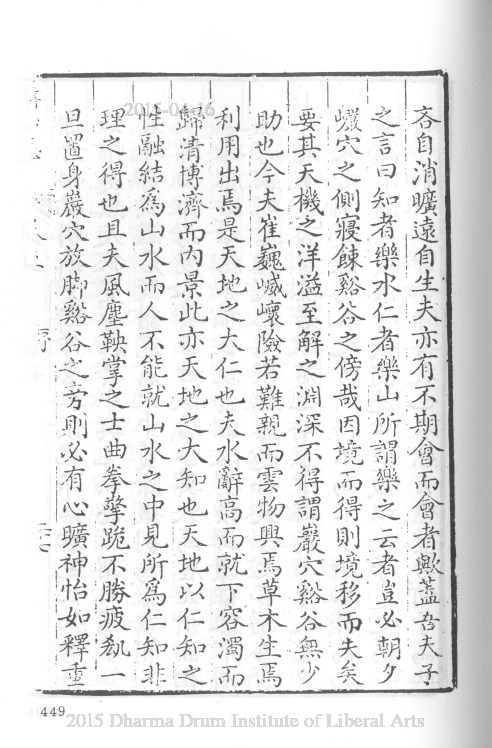 吝自消曠遠自生夫亦有不期會而會者歟蓋吾夫子
之言曰知者樂水仁者樂山所謂樂之云者豈必朝夕
巗穴之側寢餗谿谷之傍哉因境而得則境移而失矣
要其天機之洋溢至解之淵深不得謂巖穴谿谷無少
助也今夫崔巍嵗嶩險若難親而雲物興焉草木生焉
利用出焉是天地之大仁也夫水辭高而就下容濁而
歸清博濟而內景此亦天地之大知也天地以仁知之
性融結為山水而人不能就山水之中見所為仁知非
理之得也且夫風塵鞅掌之士曲拳擎跪不勝疲劇一
旦置身巖穴放脚谿谷之旁則必有心曠神怡如釋重
序
449
2015 Dharma Drum Institute of Liberal Arts